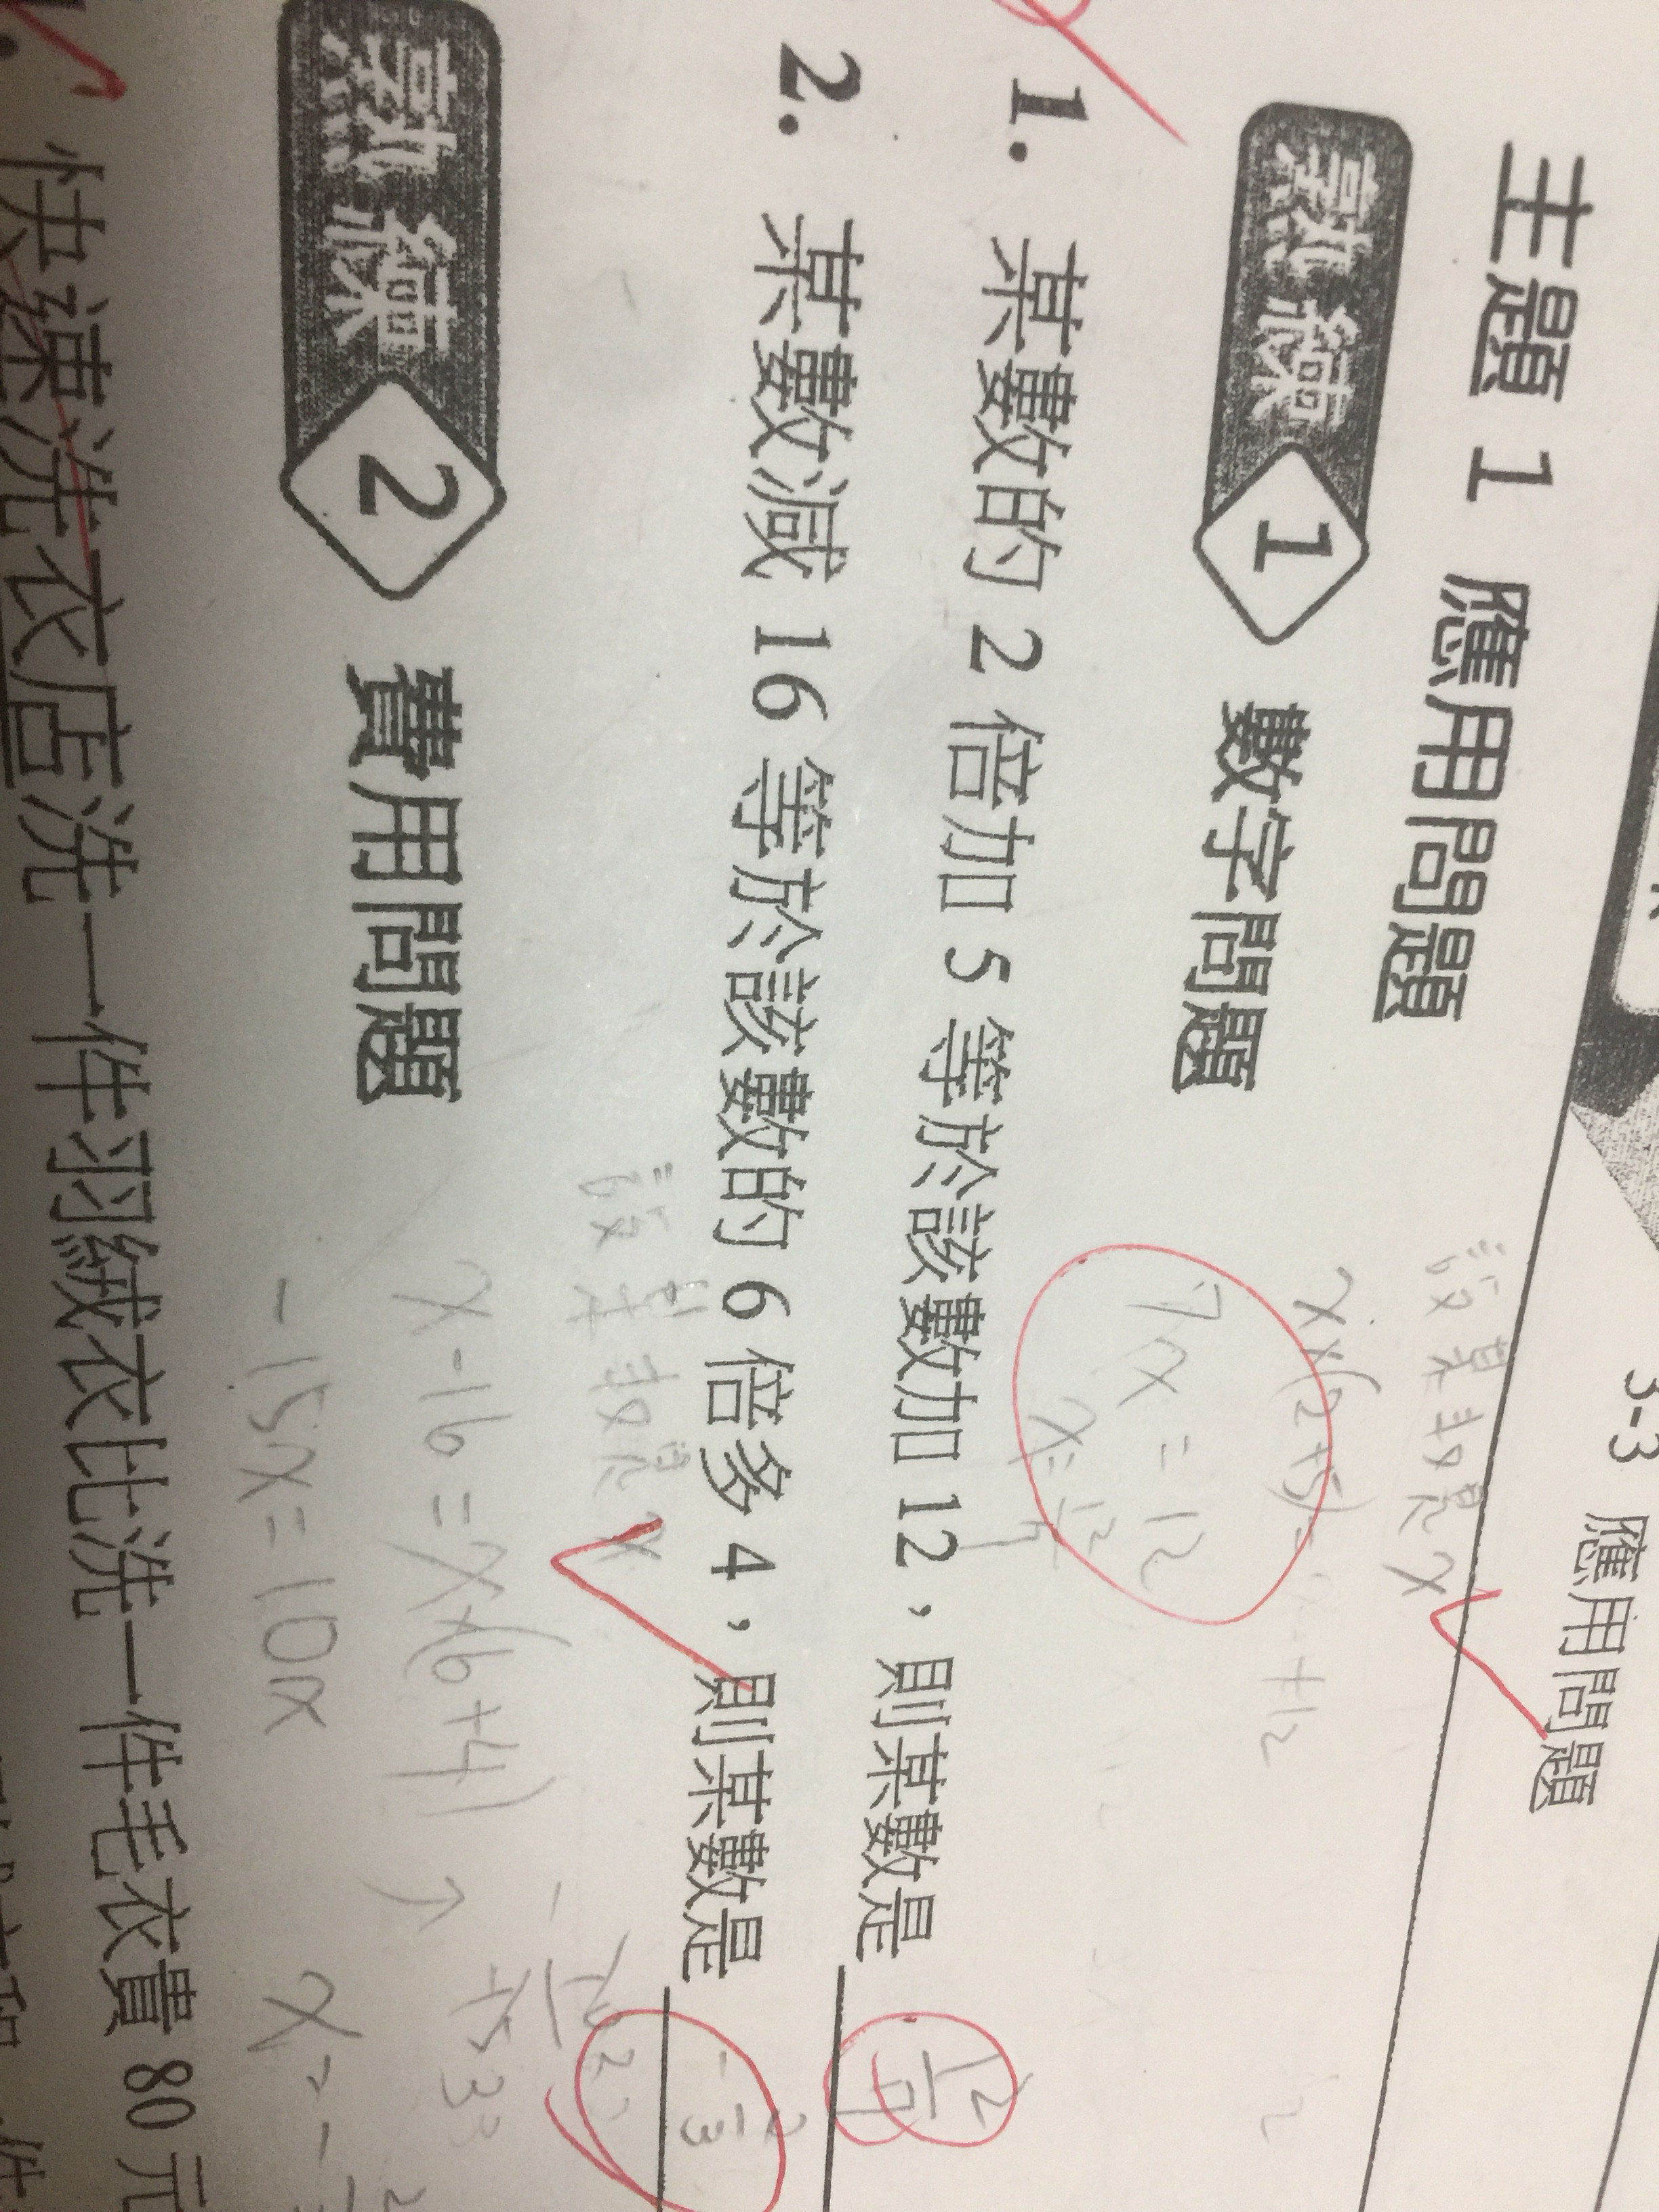 3-3 應用問題
主題 1 應用問題
設某數是 x
熟練 1 數字問題
x×(2+5)= +12
7x=12
x=12/7
1. 某數的 2 倍加 5 等於該數加 12，則某數是 12/7
2. 某數減 16 等於該數的 6 倍多 4，則某數是 -2/3
設某數是 x
熟練 2 費用問題
x-16=x×(6+4)
-15x=10x
快速洗衣店洗一件羽絨衣比洗一件毛衣貴 80 元